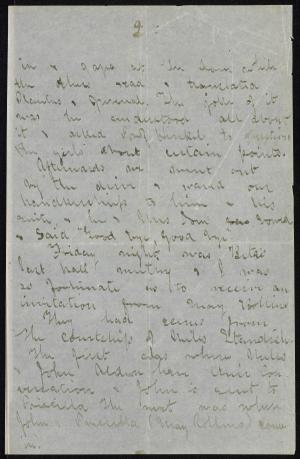 2.
in & gape at him while
the others read & translated
Plautus & Juvenal. The joke of it
was he understood all about
it & asked Prof. to question
the girls about certain points.
Afterwards we went out
by the drive & waved our
handkerchiefs to him & his
suite, & he & his son bowed
& said "Good bye, Good bye."
Friday night was Beta's
last hall meeting & I was
so fortunate as to receive an
invitation from May Rollins
They had scenes from
The courtship of Miles Standish.
The first was where Miles
& John Alden have their con-
versation & John is sent to
Priscilla The next was when
John & Priscilla (May Rollins) come
in.